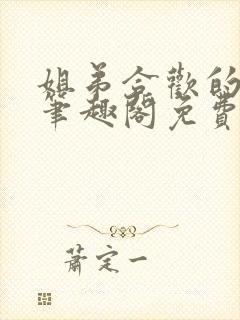 姐弟合歡的
筆趣閣免費
蕭定一